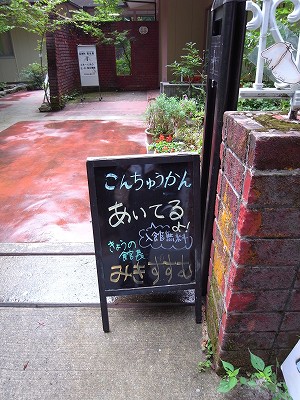 こんちゅうかん
あいてる
よ!
入館無料
きょうの
館長
みきすすむ